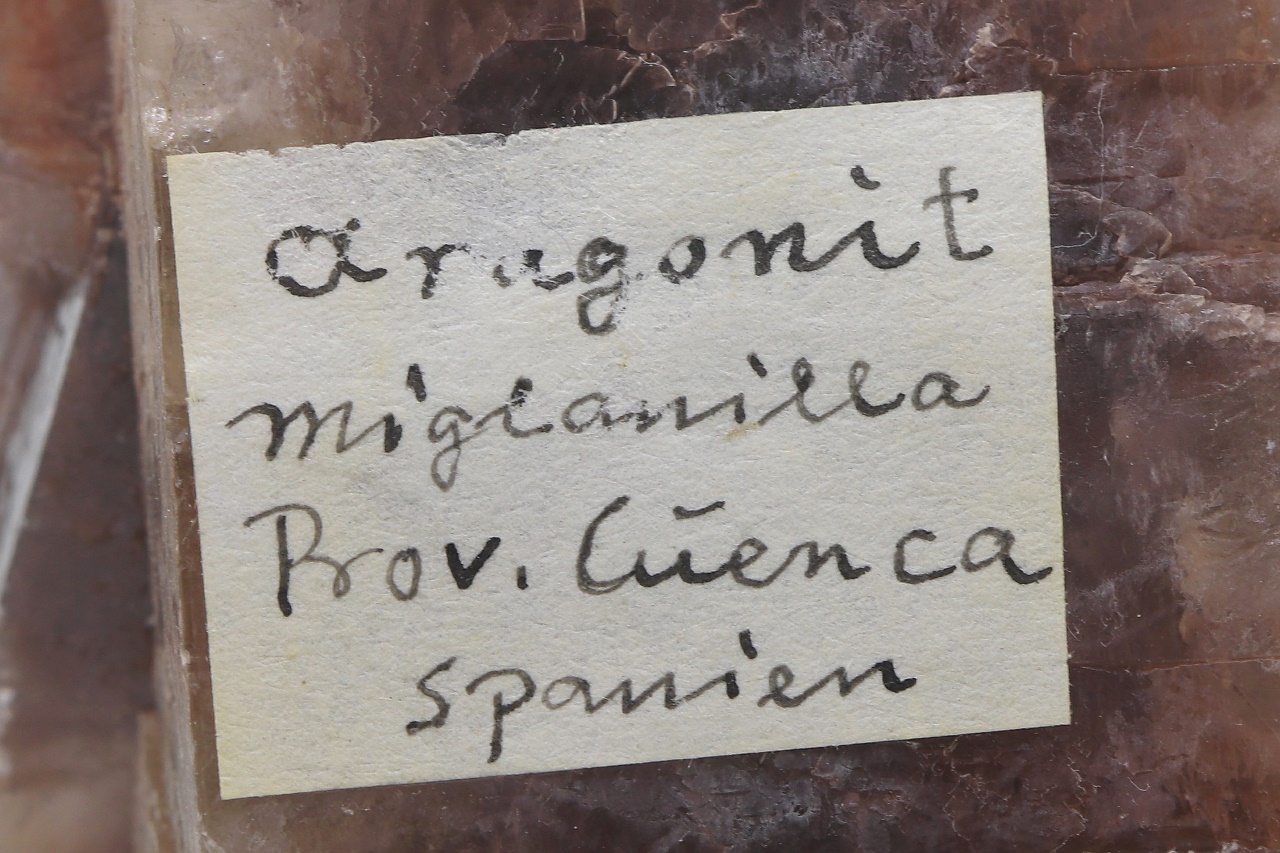 Aragonit
Miglanilla
Prov. Cūenca
Spanien